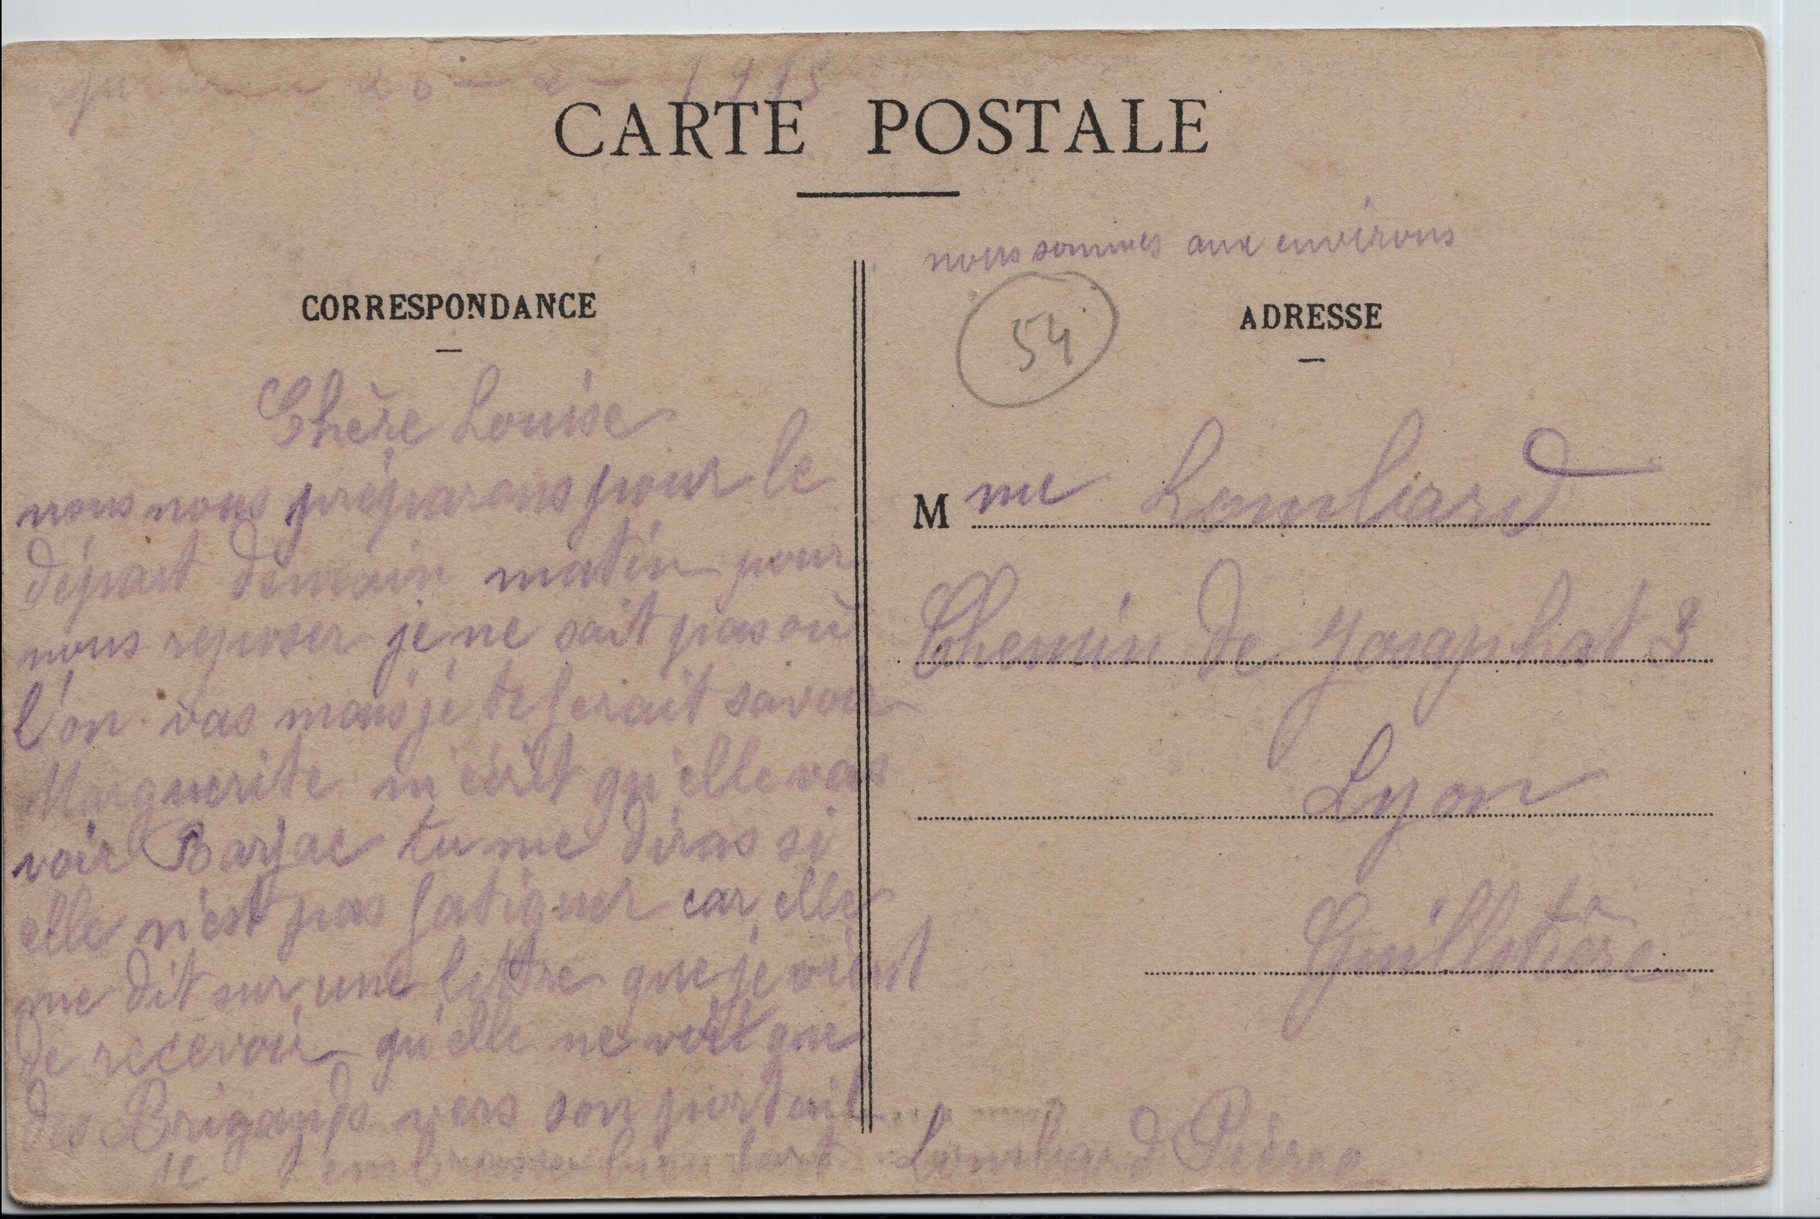 26 - 2 - 1915
CARTE POSTALE
nous sommes aux environs
CORRESPONDANCE
Chère Louise
nous nous préparons pour le
départ demain matin pour
nous reposer je ne sait pas où
l'on vas mais je te ferait savoir
Marguerite m'écrit qu'elle vas
voir Barjac tu me diras si
elle n'est pas fatiguer car elle
me dit sur une lettre que je vient
de recevoir qu'elle ne voit que
des Brigands vers son portail
je t'embrasse bien fort Lombard Pierre
54
ADRESSE
Mme Lombard
Chemin de Josaphat 3
Lyon
Guillotière